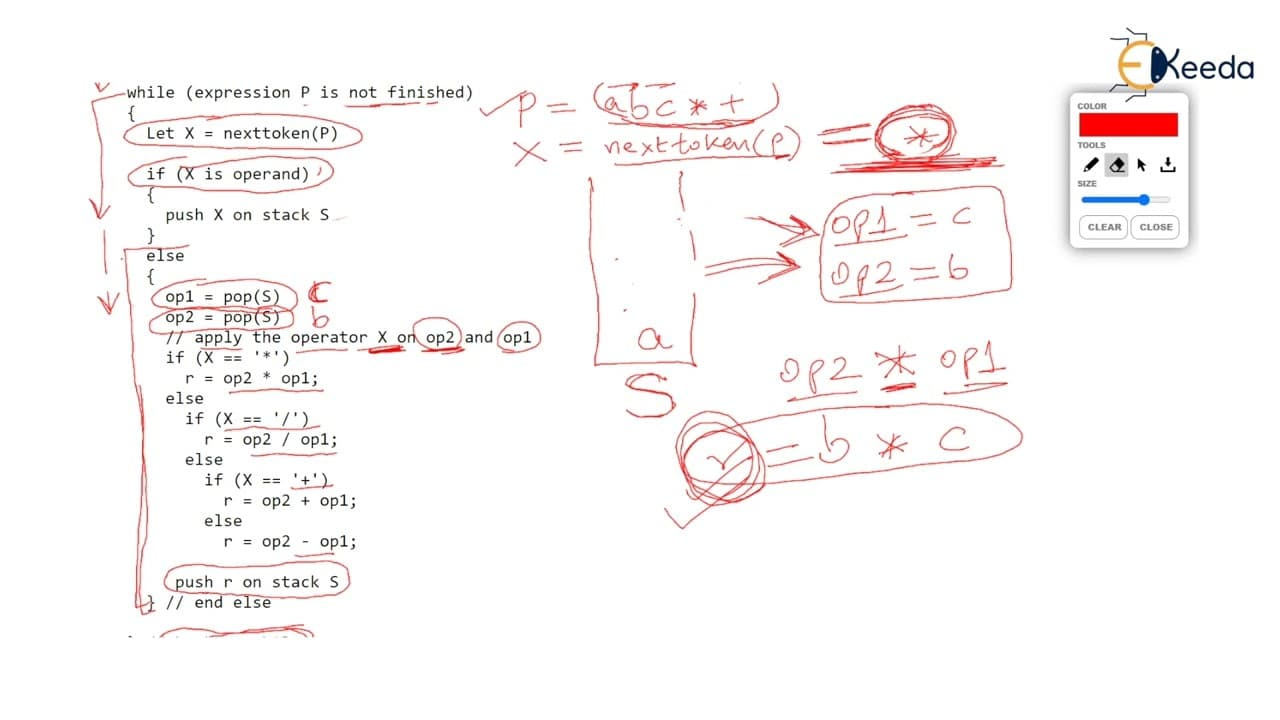 while (expression P is not finished)
{
Let X = nexttoken(P)
if (X is operand)
{
push X on stack S
}
else
{
op1 = pop(S) c
op2 = pop(S) b
// apply the operator X on op2 and op1
if (X == '*')
r = op2 * op1;
else
if (X == '/')
r = op2 / op1;
else
if (X == '+')
r = op2 + op1;
else
r = op2 - op1;
push r on stack S
} // end else
P = (abc*+)
X = nexttoken(P) = *
op1 = c
op2 = b
a
S
op2 * op1
r = b * c
EKeeda
COLOR
TOOLS
SIZE
CLEAR CLOSE